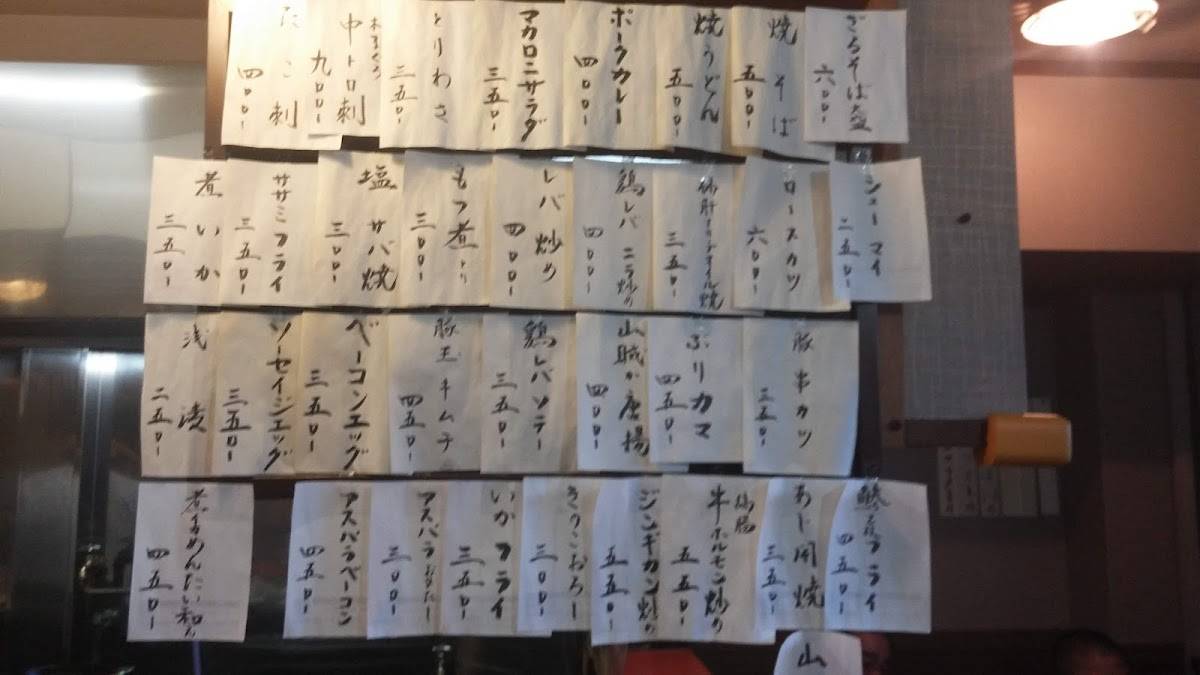 ざるそば
六〇〇-
焼そば
五〇〇-
焼うどん
五〇〇-
ポークカレー
四〇〇-
マカロニサラダ
三五〇-
とりわさ
三五〇-
本まぐろ
中トロ刺
九〇〇-
たこ刺
四〇〇-
シューマイ
二五〇-
ロースカツ
六〇〇-
三五〇-
鶏レバニラ炒め
四〇〇-
レバ炒め
四〇〇-
もつ煮
三〇〇-
塩サバ焼
三〇〇-
ササミフライ
三五〇-
煮いか
三五〇-
豚串カツ
三五〇-
ぶりカマ
四五〇-
山賊か唐揚
四〇〇-
鶏レバソテー
三五〇-
豚玉キムチ
四五〇-
ベーコンエッグ
三五〇-
ソーセイジエッグ
三五〇-
浅漬
二五〇-
フライ
四五〇-
あじ開焼
三五〇-
牛ホルモン炒め
五五〇-
ジンギカン炒め
五五〇-
きのこおろし
三〇〇-
いかフライ
三五〇-
アスパラおひたし
三〇〇-
アスパラベーコン
四五〇-
煮いかめんたい和え
四五〇-
山